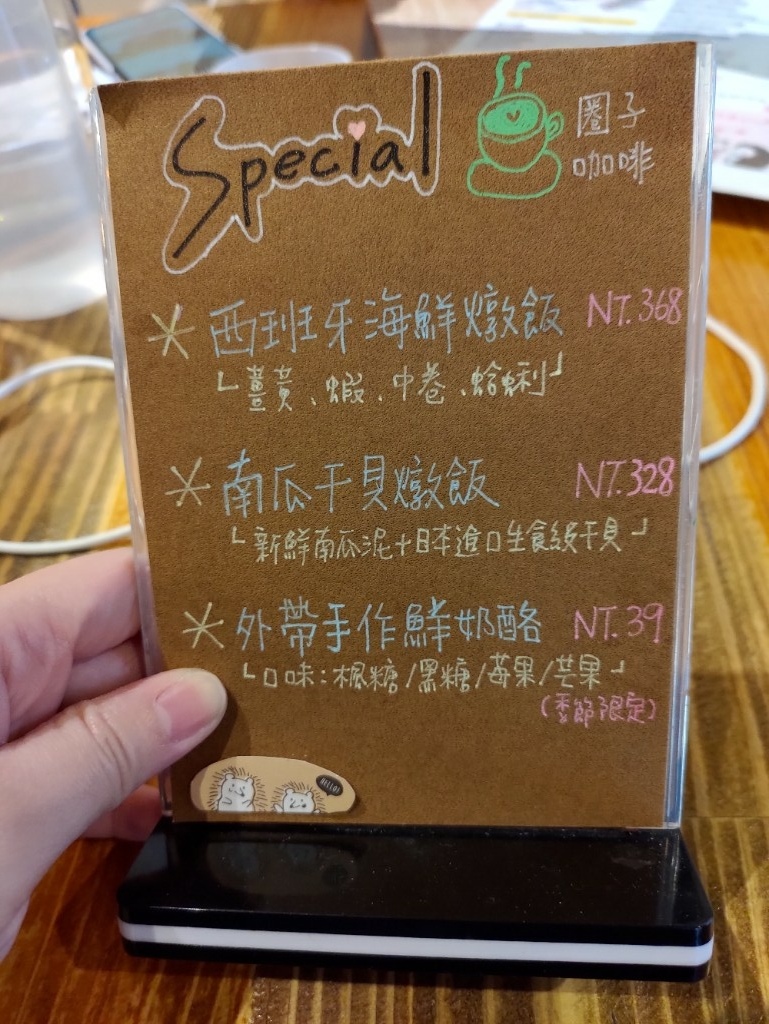 Special
圈子
咖啡
西班牙海鮮燉飯 NT.368
「薑黃、蝦、中卷、蛤蜊」
南瓜干貝燉飯 NT.328
「新鮮南瓜泥+日本進口生食級干貝」
外帶手作鮮奶酪 NT.39
「口味:楓糖/黑糖/莓果/芒果」
(季節限定)
Hello!